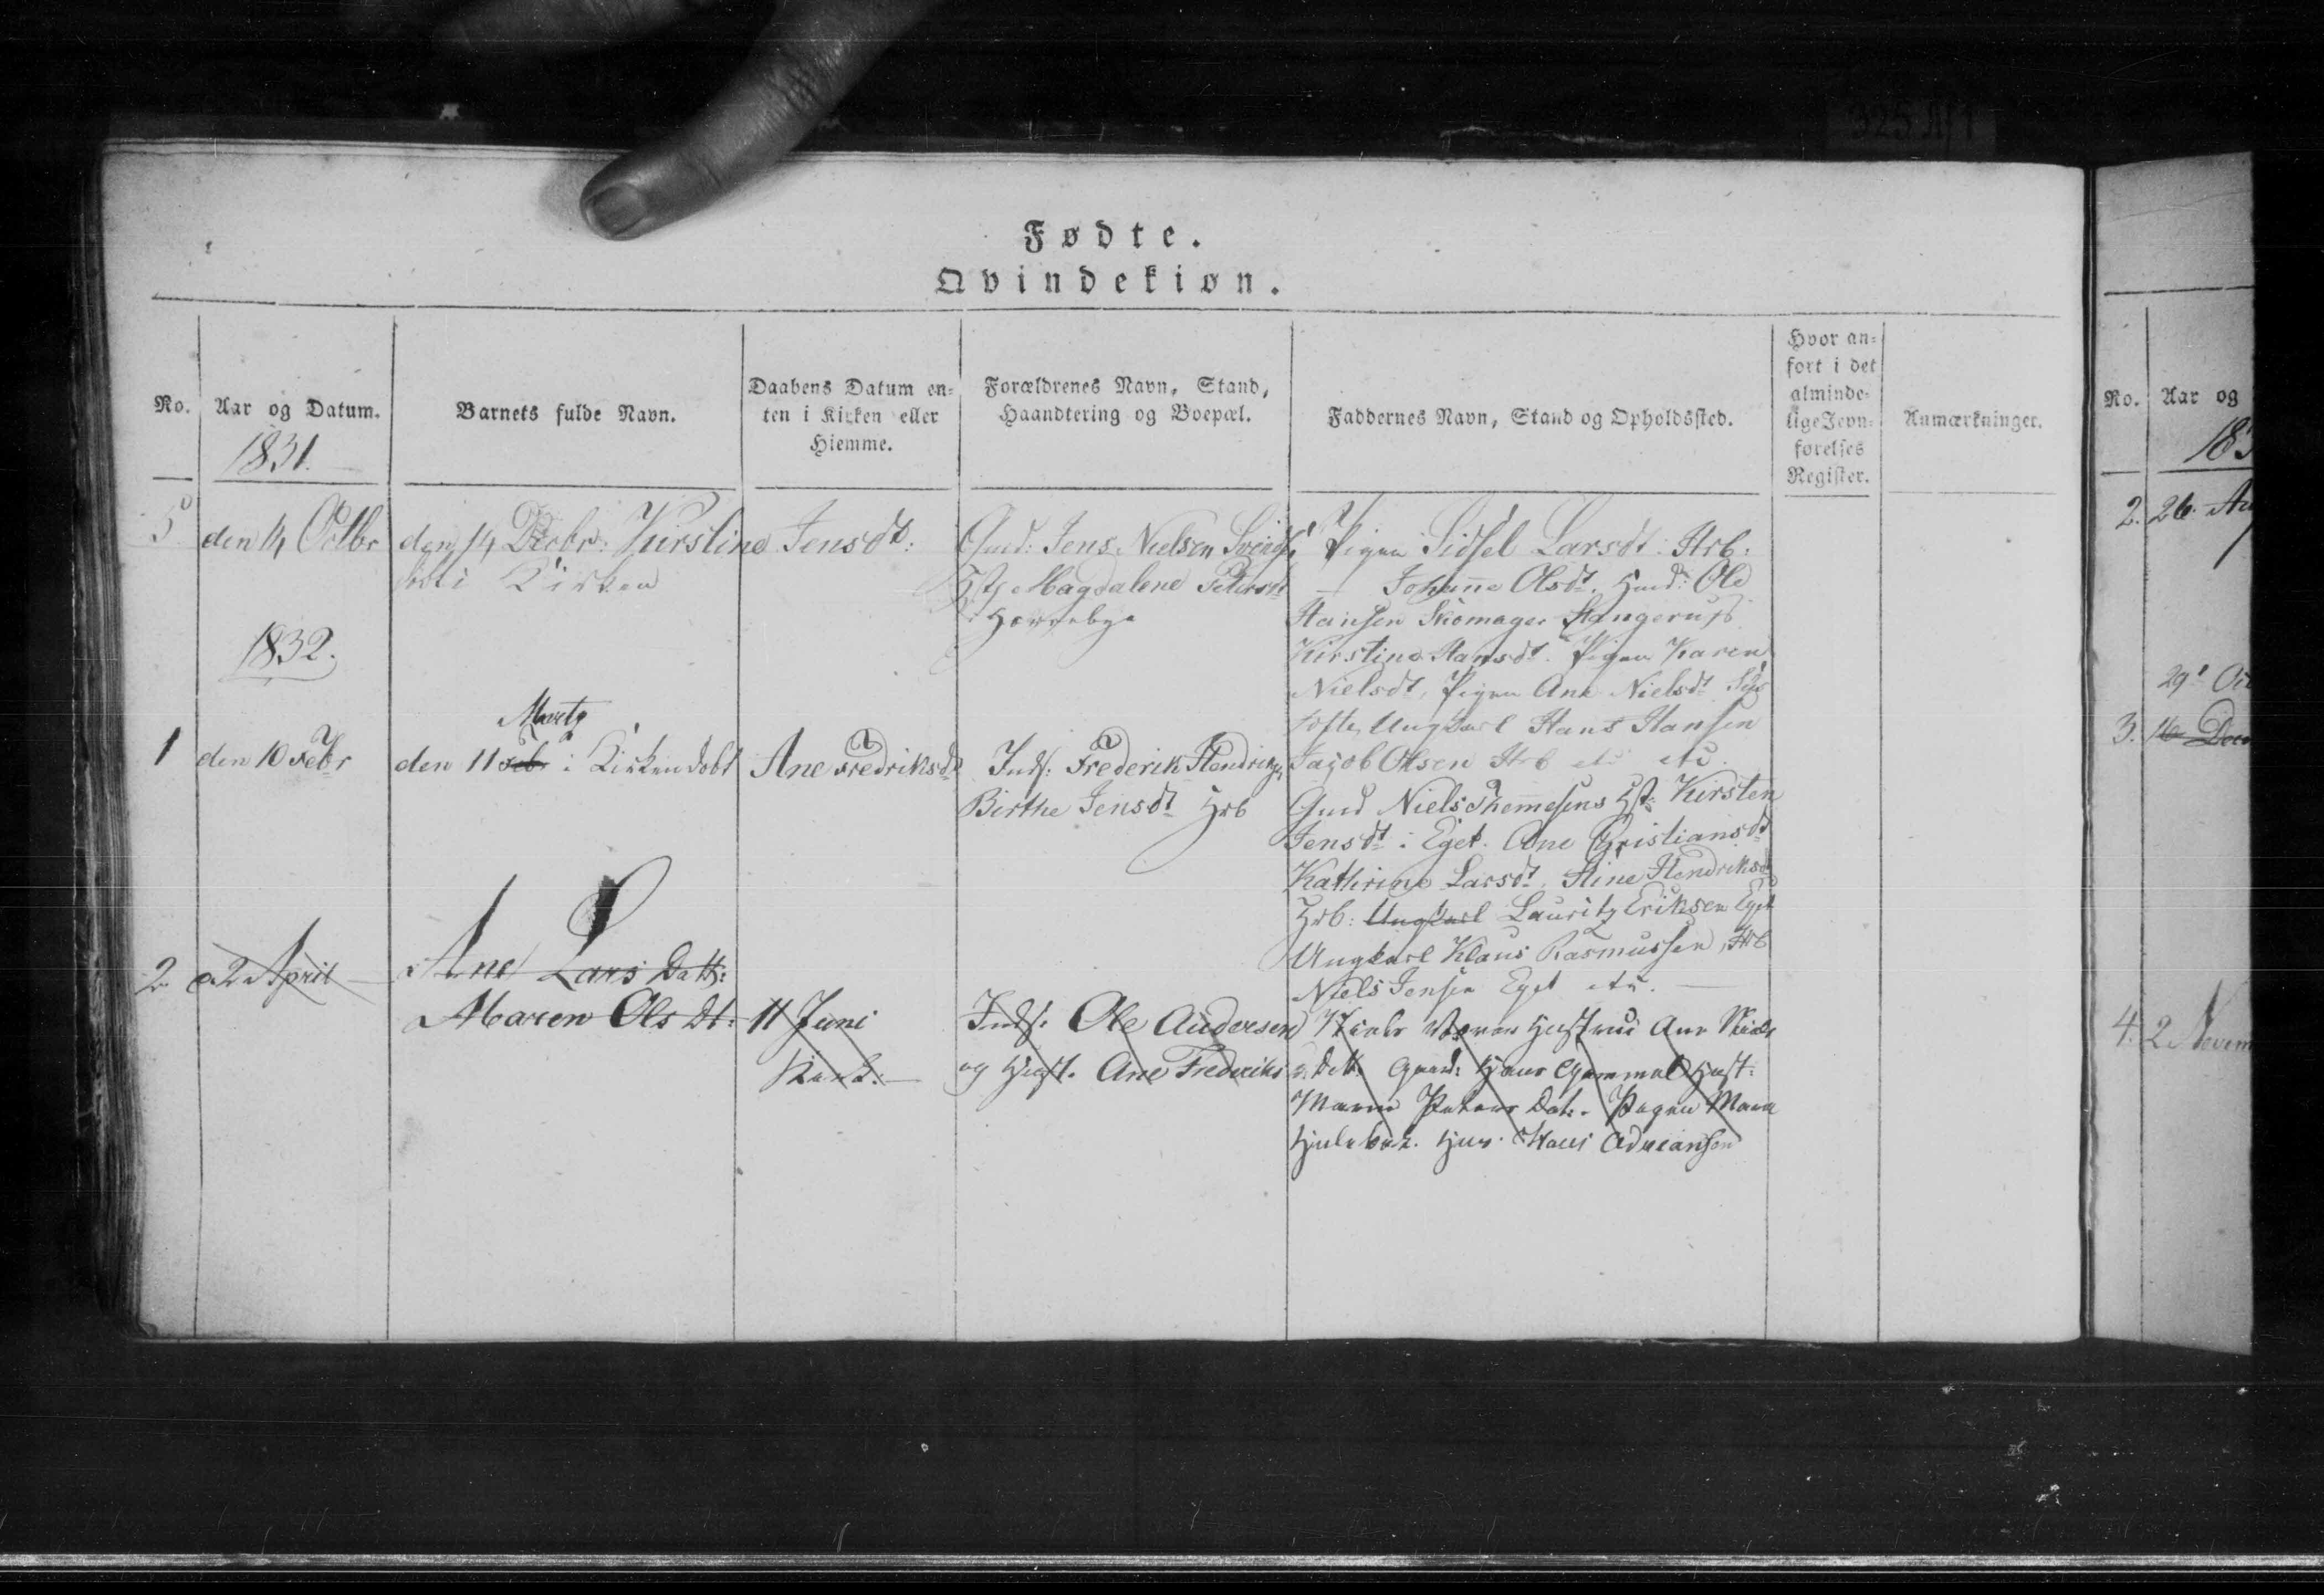 325 A/1
Fødte.
Qvindekiøn.
No.
Aar og Datum.
1831.
Barnets fulde Navn.
Daabens Datum en=
ten i Kirken eller
Hiemme.
Forældrenes Navn, Stand,
Haandtering og Boepæl.
Faddernes Navn, Stand og Opholdssted.
Hvor an=
ført i det
alminde=
lige Jevn=
førelses
Register.
Anmærkninger.
5
den 14 Octbr
den 14 Decbr. Kirstine Jensdt:
i Kirken
Gmd: Jens Nielsen
Magdalene Petersdt
Pigen Sidsel Larsdt: Hrb:
Johanne Olsdt. Huusmd: Ole
Hansen Skomager
Kirstine Hansdt. Pigen Karen
Nielsdt, Pigen Ane Nielsdt
Ungkarl Hans Hansen
Jacob Olsen Hrb etc etc.
1832.
1
den 10 Febr
Marts
den 11 Feb i Kirken dobt
Ane Fredriksdt
Inds: Frederik Hendriks
Birthe Jensdt Hrb
Gmd Niels Hst: Kirsten
Jensdt: Eget. Ane Christiansdt
Kathrine Larsdt, Stine Hendriksdt
Hrb: Ungkarl Lauritz Eriksen Eget
Ungkarl Klaus Rasmussen, Hrb
Niels Jensen Eget etc.
2.
2 April
Ane Lars Datt:
Maren Ols Dt:
11 Juni
Inds: Ole Andersen
og Hust. Ane Frederiks
Hustrue Ane Niels
Dtt. Gaard: Hans Gammel Hust:
Maren Peters Dat. Pigen Maren
Hans Adriansen
No.
Aar og
183
2.
26. Au
3.
29 Oc
16 Dece
4.
2 Novem